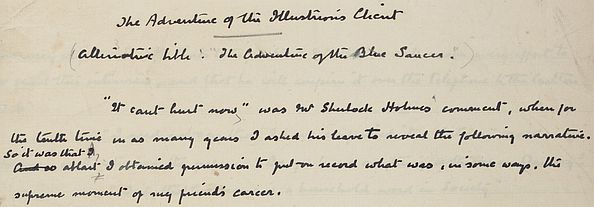 The Adventure of the Illustrious Client
(Alternative title : "The Adventure of the Blue Saucer.")
"It can't hurt now" was Mr Sherlock Holmes comment, when for
the tenth time in as many years I asked his leave to reveal the following narrative.
So it was that I
And so at last I obtained permission to put on record what was, in some ways, the
supreme moment of my friend's career.